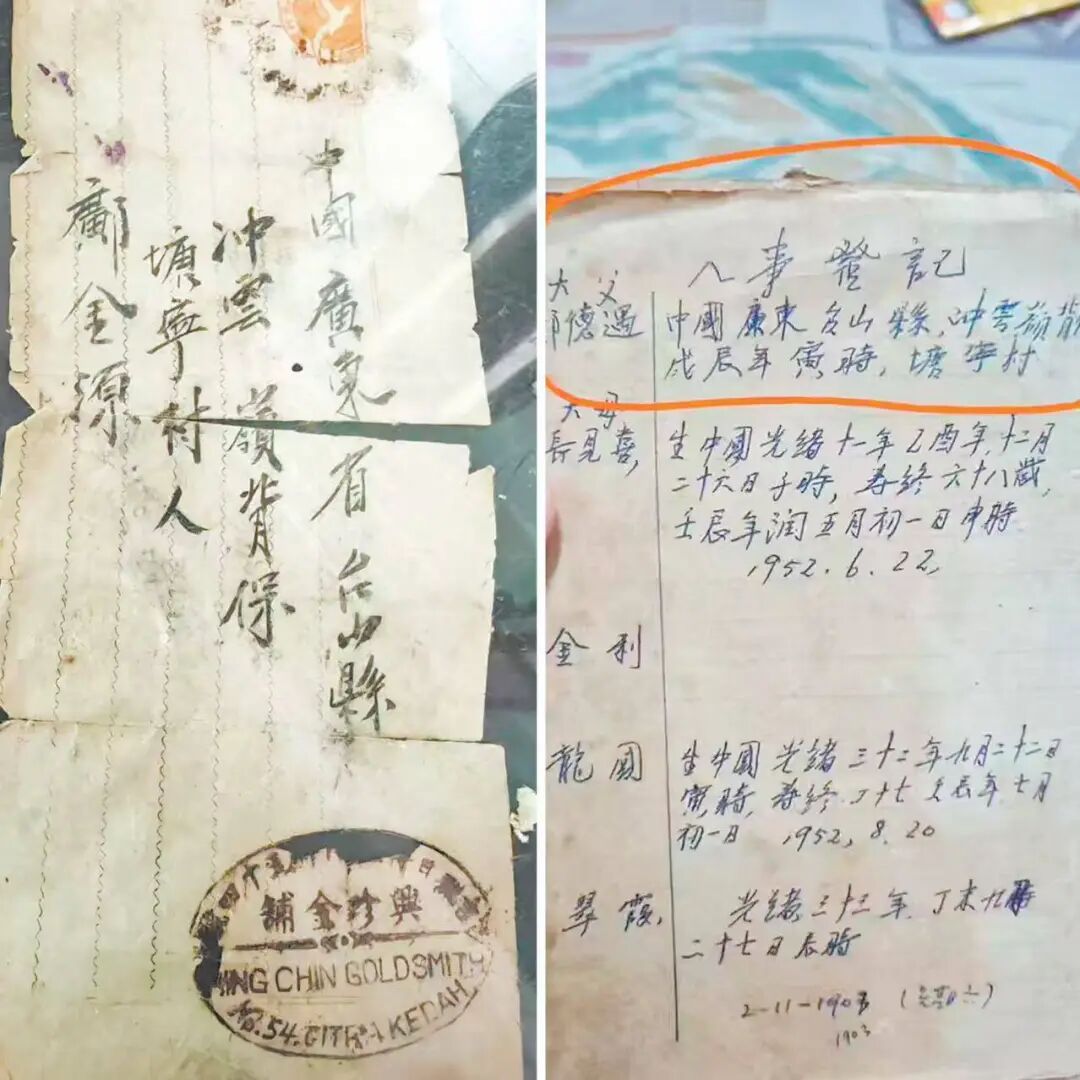 中國廣東省台山縣
冲雲嶺背保
塘寧村人
鄺金源
興珍金舖
HING CHIN GOLDSMITH
No. 54. KEDAH
人事登記
大父
德遇
中國廣東台山縣,冲雲嶺背
戊辰年寅時,塘宁村
大母
見喜,
生中國光緒十一年乙酉年,十二月
二十六日子時,寿终六十八歲,
壬辰年润五月初一日申時
1952.6.22,
金利
龍圓
生中國光緒三十二年九月二十二日
寅時,寿终 十七 辰年七月
初一日 1952,8.20
翠霞,
光緒三十三年 丁未九
二十七日辰時
2-11-1903
1903